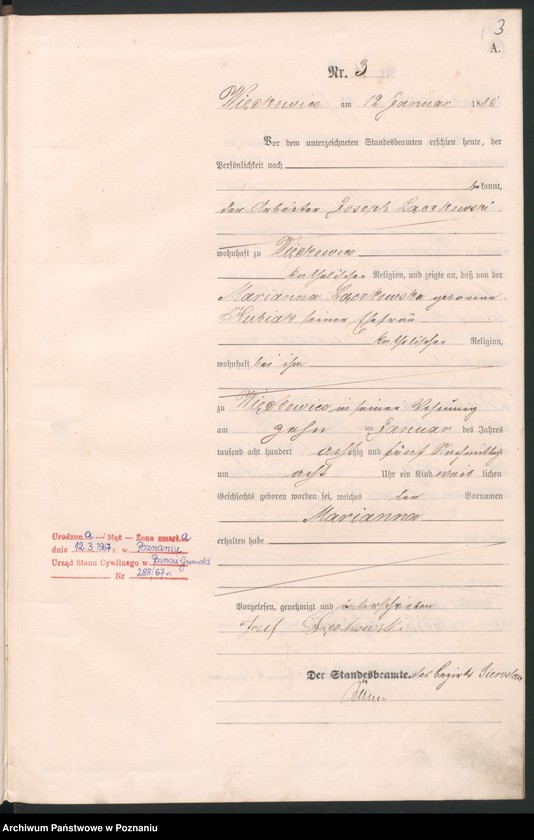 3
A.
Nr. 3
Więckowice am 12 Januar 1886
Vor dem unterzeichneten Standesbeamten erschien heute, der
Persönlichkeit nach
bekannt,
der Arbeiter Joseph Łączkowski
wohnhaft zu Więckowice
katholischer Religion, und zeigte an, daß von der
Marianna Łączkowska geborene
Kubiak seiner Ehefrau
katholischer Religion,
wohnhaft bei ihm
zu Więckowice in seiner Wohnung
am zehn ten Januar des Jahres
tausend acht hundert achtzig und fünf Nachmittags
um acht Uhr ein Kind weib lichen
Geschlechts geboren worden sei, welches den Vornamen
Marianna
erhalten habe
Urodzona — Mąż — Żona zmarła
dnia 12.3.1967 r. w Poznaniu
Urząd Stanu Cywilnego w Poznań-Grunwald
Nr 288/67 r.
Vorgelesen, genehmigt und unterschrieben
Józef
Der Standesbeamte. des Bezirks
Archiwum Państwowe w Poznaniu